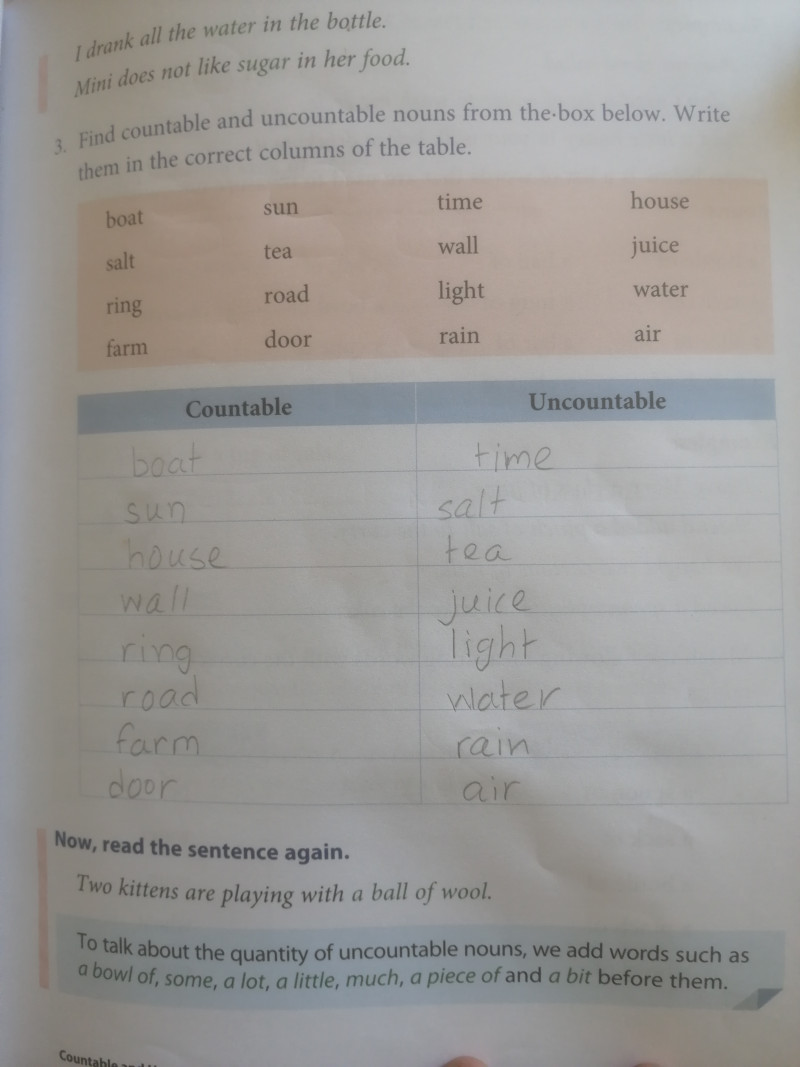 I drank all the water in the bottle.
Mini does not like sugar in her food.
3. Find countable and uncountable nouns from the box below. Write
them in the correct columns of the table.
boat sun time house
salt tea wall juice
ring road light water
farm door rain air
Countable Uncountable
boat time
sun salt
house tea
wall juice
ring light
road water
farm rain
door air
Now, read the sentence again.
Two kittens are playing with a ball of wool.
To talk about the quantity of uncountable nouns, we add words such as
a bowl of, some, a lot, a little, much, a piece of and a bit before them.
Countable